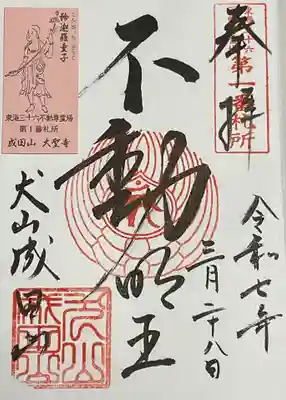 奉拝
第一番札所
令和七年
三月二十八日
不動明王
犬山成田山
矜迦羅童子
東海三十六不動尊霊場
第1番札所
成田山 大聖寺